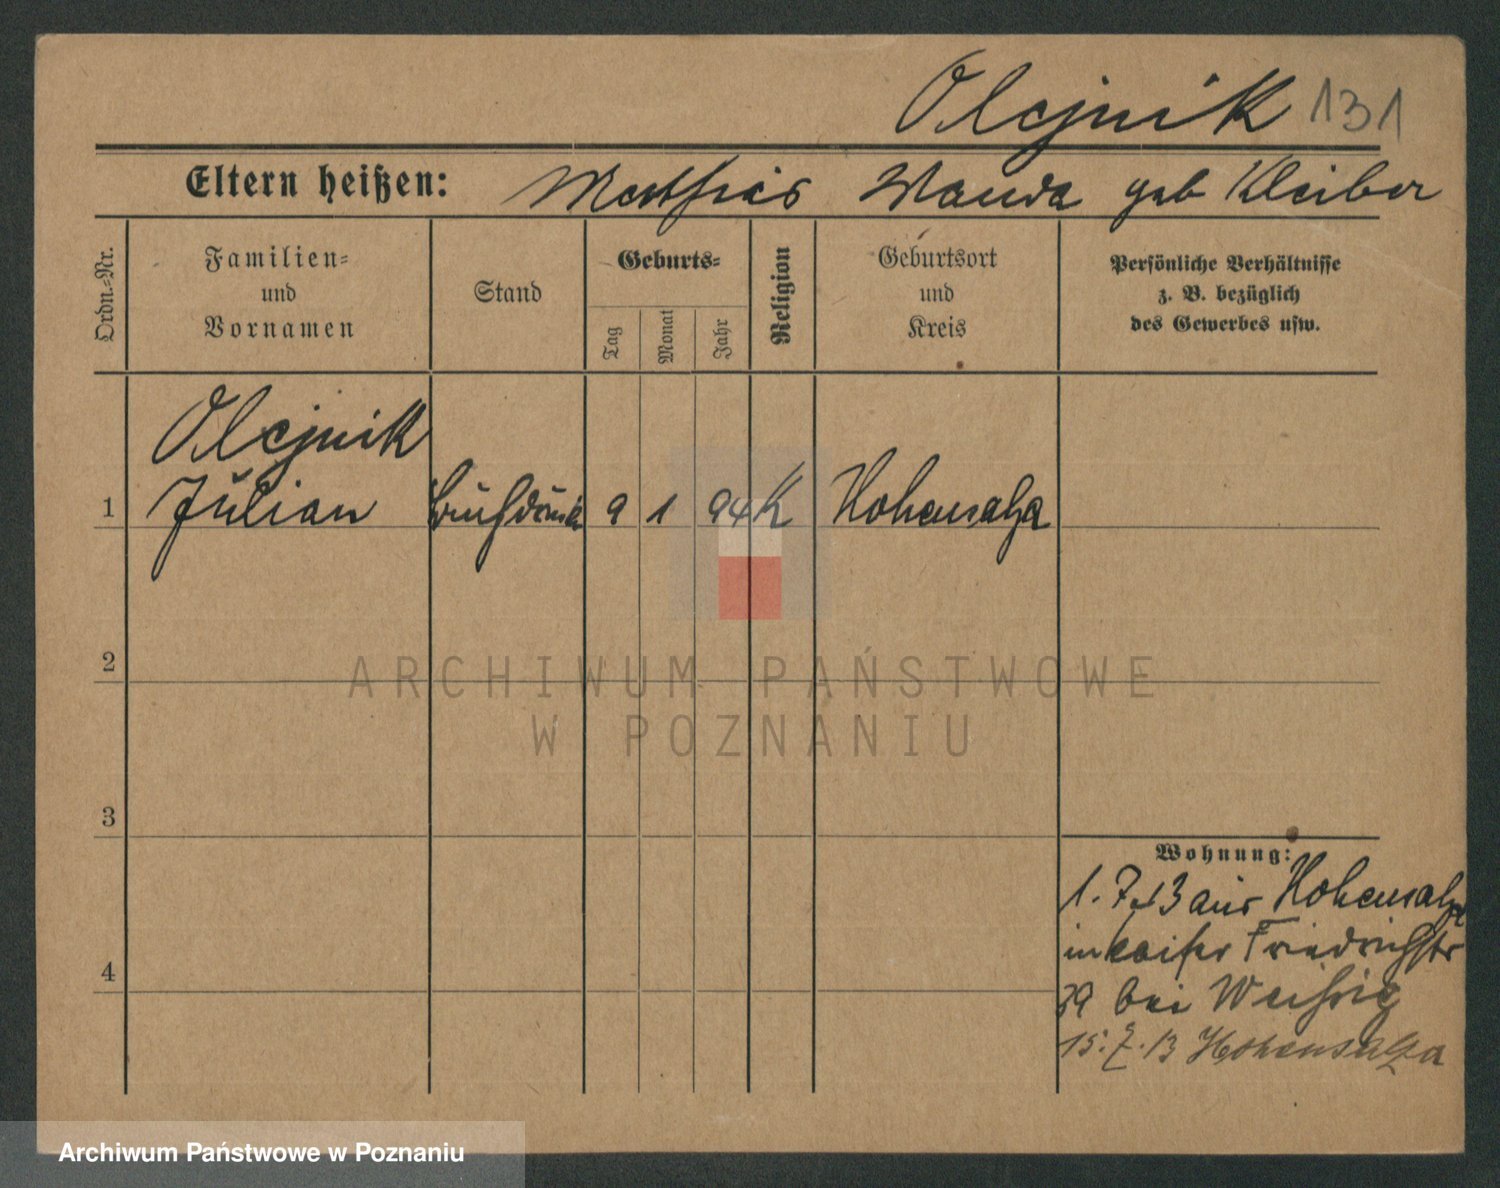 Olejnik 131
Eltern heißen: Mathias Wanda geb Kleiber
Ordn.-Nr.
Familien-
und
Vornamen
Stand
Geburts-
Tag
Monat
Jahr
Religion
Geburtsort
und
Kreis
Persönliche Verhältnisse
z. B. bezüglich
des Gewerbes usw.
Olejnik
1 Julian Buchdruck 9 1 94 K Hohensalza
2
3
4
Wohnung:
1. 7. 13 aus Hohensalza
in Kaiser Friedrichstr
39 bei
15. 7. 13 Hohensalza
ARCHIWUM PAŃSTWOWE
W POZNANIU
Archiwum Państwowe w Poznaniu